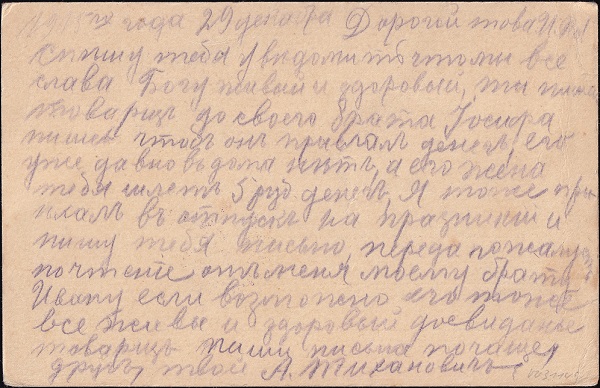 года 29 декабря Дорогой това
пишу тебя уведомить что мы все
слава Богу живыи и здоровыи, ты
товарищъ до своего брата Іосифа
пишеш чтобъ онъ прислалъ денегъ, его
уже давно въ дома нитъ, а его жена
тебя шлетъ 5 руб денегъ, Я тоже при
ихалъ въ отпускъ на праздники и
пишу тебя письмо, передай пожалуста
почтение отъ меня моему брату
Ивану если возможно его тоже
все живы и здоровыи досвиданье
товарищъ пиши письма почаще,
другъ твой А. Тихановичъ